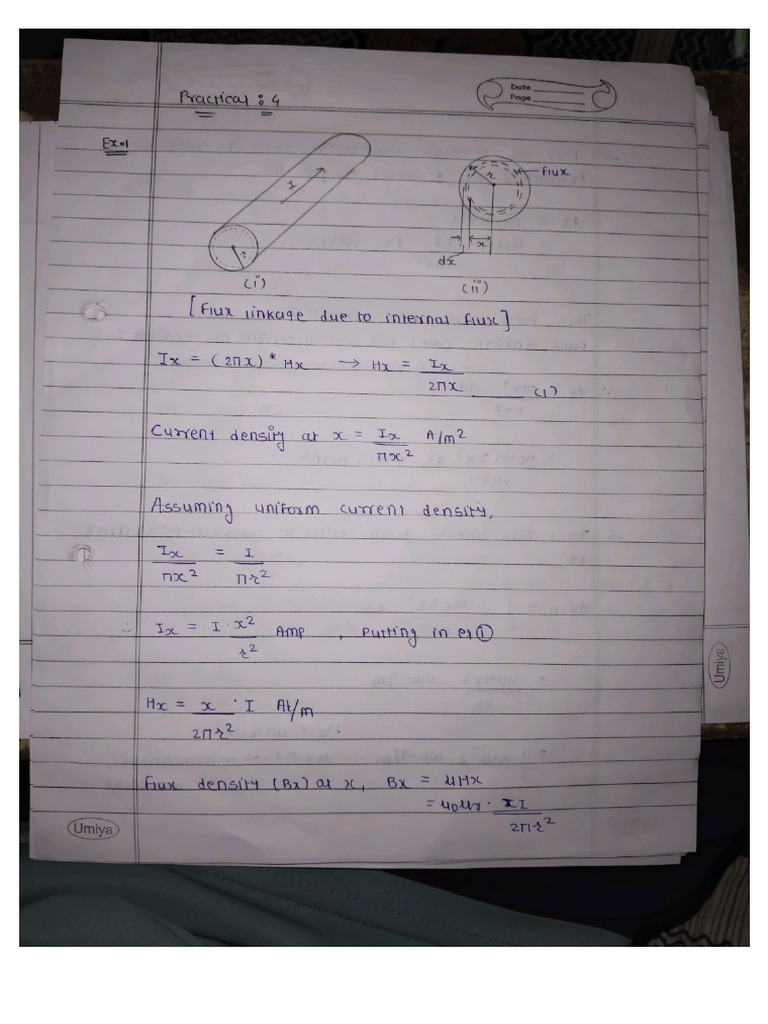 Practical : 4
Date
Page
Ex.1
I
r
(i)
r
flux
x
dx
(ii)
[Flux linkage due to internal flux]
Ix = (2πx) * Hx → Hx = Ix / 2πx ___ (1)
Current density at x = Ix / πx² A/m²
Assuming uniform current density,
Ix / πx² = I / πr²
Ix = I · x² / r² Amp , Putting in eq ①
Hx = x / 2πr² · I At/m
Flux density (Bx) at x, Bx = μHx
= μ0μr · xI / 2πr²
Umiya
Umiya